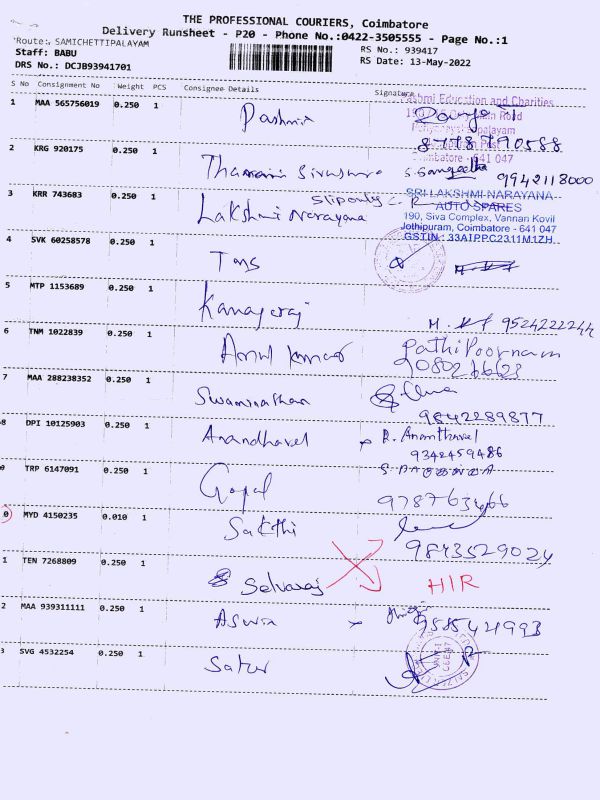 THE PROFESSIONAL COURIERS, Coimbatore
Delivery Runsheet - P20 - Phone No.:0422-3505555 - Page No.:1
Route: SAMICHETTIPALAYAM
RS No.: 939417
Staff: BABU
RS Date: 13-May-2022
DRS No.: DCJB93941701
S No Consignment No Weight PCS Consignee Details Signature
1 MAA 565756019 0.250 1 Pashmi
Education and Charities
8778790588
641 047
2 KRG 920175 0.250 1 S. Sangeetha
9942118000
3 KRR 743683 0.250 1 Lakshmi Narayana
Slip only
SRI LAKSHMI NARAYANA
AUTO SPARES
190, Siva Complex, Vannan Kovil
Jothipuram, Coimbatore - 641 047
GSTIN : 33AIPPC2311M1ZH
4 SVK 60258578 0.250 1 Tms
5 MTP 1153689 0.250 1 Kanagaraj
9524222244
6 TNM 1022839 0.250 1 Amul kumar Pathi Poornam
7 MAA 288238352 0.250 1 Swaminathan
9842289877
8 DPI 10125903 0.250 1 Anandhavel R. Ananthavel
9342459486
TRP 6147091 0.250 1 Gopal
0 MYD 4150235 0.010 1 Sakthi
9843529024
1 TEN 7268809 0.250 1 Selvaraj HIR
2 MAA 939311111 0.250 1 Aswin
3 SVG 4532254 0.250 1